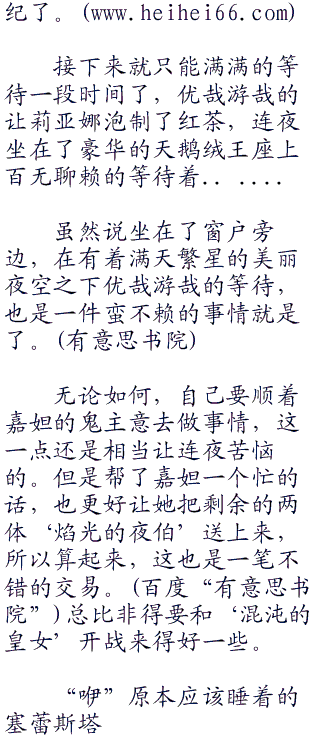 纪了。(www.heihei66.com)
接下来就只能满满的等
待一段时间了，优哉游哉的
让莉亚娜泡制了红茶，连夜
坐在了豪华的天鹅绒王座上
百无聊赖的等待着.. ....
虽然说坐在了窗户旁
边，在有着满天繁星的美丽
夜空之下优哉游哉的等待，
也是一件蛮不赖的事情就是
了。(有意思书院)
无论如何，自己要顺着
嘉妲的鬼主意去做事情，这
一点还是相当让连夜苦恼
的。但是帮了嘉妲一个忙的
话，也更好让她把剩余的两
体‘焰光的夜伯’送上来，
所以算起来，这也是一笔不
错的交易。(百度“有意思书
院”)总比非得要和‘混沌的
皇女’开战来得好一些。
“咿”原本应该睡着的
塞蕾斯塔